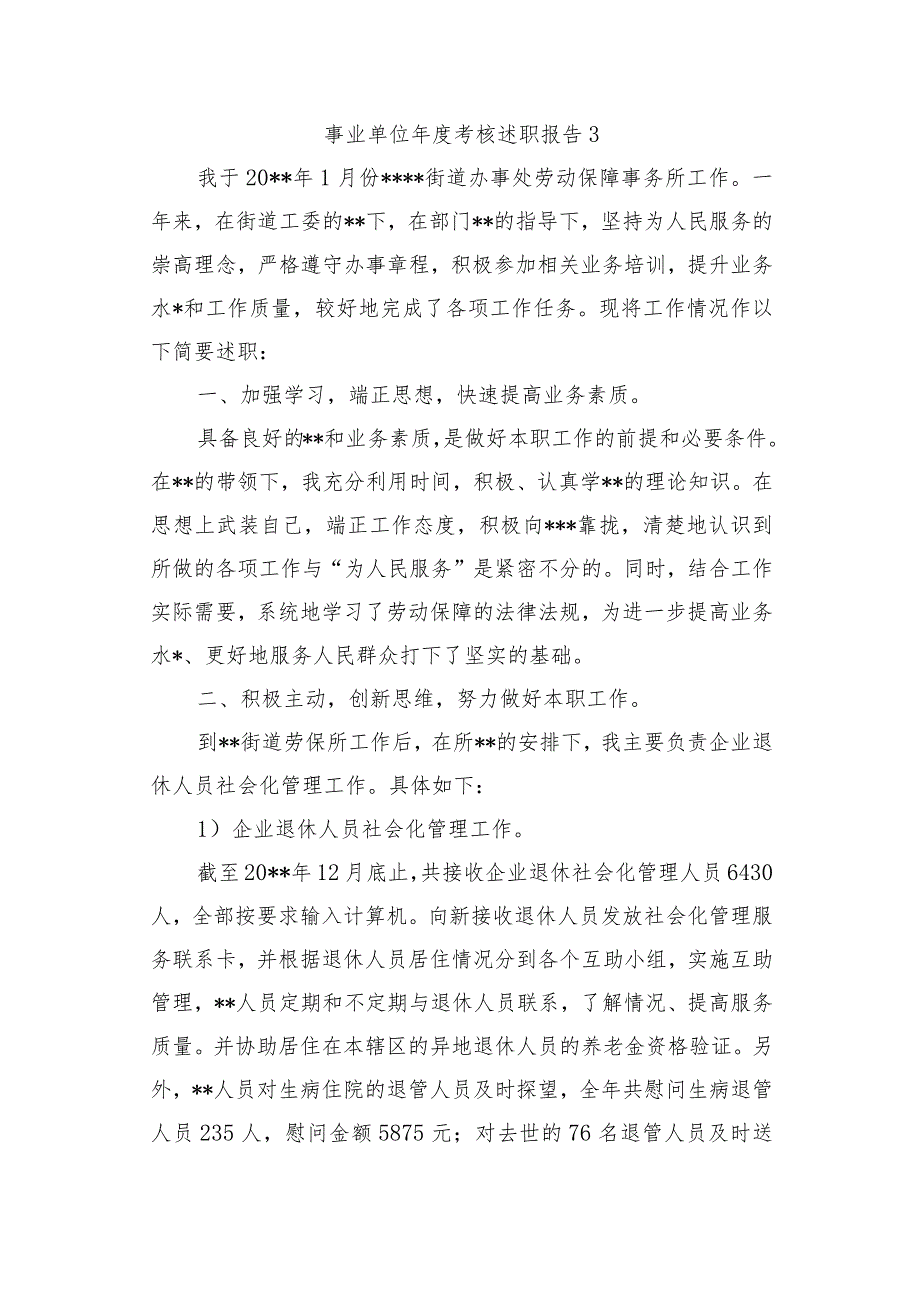 事业单位年度考核述职报告3
我于20**年1月份****街道办事处劳动保障事务所工作。一
年来，在街道工委的**下，在部门**的指导下，坚持为人民服务的
崇高理念，严格遵守办事章程，积极参加相关业务培训，提升业务
水*和工作质量，较好地完成了各项工作任务。现将工作情况作以
下简要述职：
一、加强学习，端正思想，快速提高业务素质。
具备良好的**和业务素质，是做好本职工作的前提和必要条件。
在**的带领下，我充分利用时间，积极、认真学**的理论知识。在
思想上武装自己，端正工作态度，积极向***靠拢，清楚地认识到
所做的各项工作与“为人民服务”是紧密不分的。同时，结合工作
实际需要，系统地学习了劳动保障的法律法规，为进一步提高业务
水*、更好地服务人民群众打下了坚实的基础。
二、积极主动，创新思维，努力做好本职工作。
到**街道劳保所工作后，在所**的安排下，我主要负责企业退
休人员社会化管理工作。具体如下：
1）企业退休人员社会化管理工作。
截至20**年12月底止，共接收企业退休社会化管理人员6430
人，全部按要求输入计算机。向新接收退休人员发放社会化管理服
务联系卡，并根据退休人员居住情况分到各个互助小组，实施互助
管理，**人员定期和不定期与退休人员联系，了解情况、提高服务
质量。并协助居住在本辖区的异地退休人员的养老金资格验证。另
外，**人员对生病住院的退管人员及时探望，全年共慰问生病退管
人员235人，慰问金额5875元；对去世的76名退管人员及时送